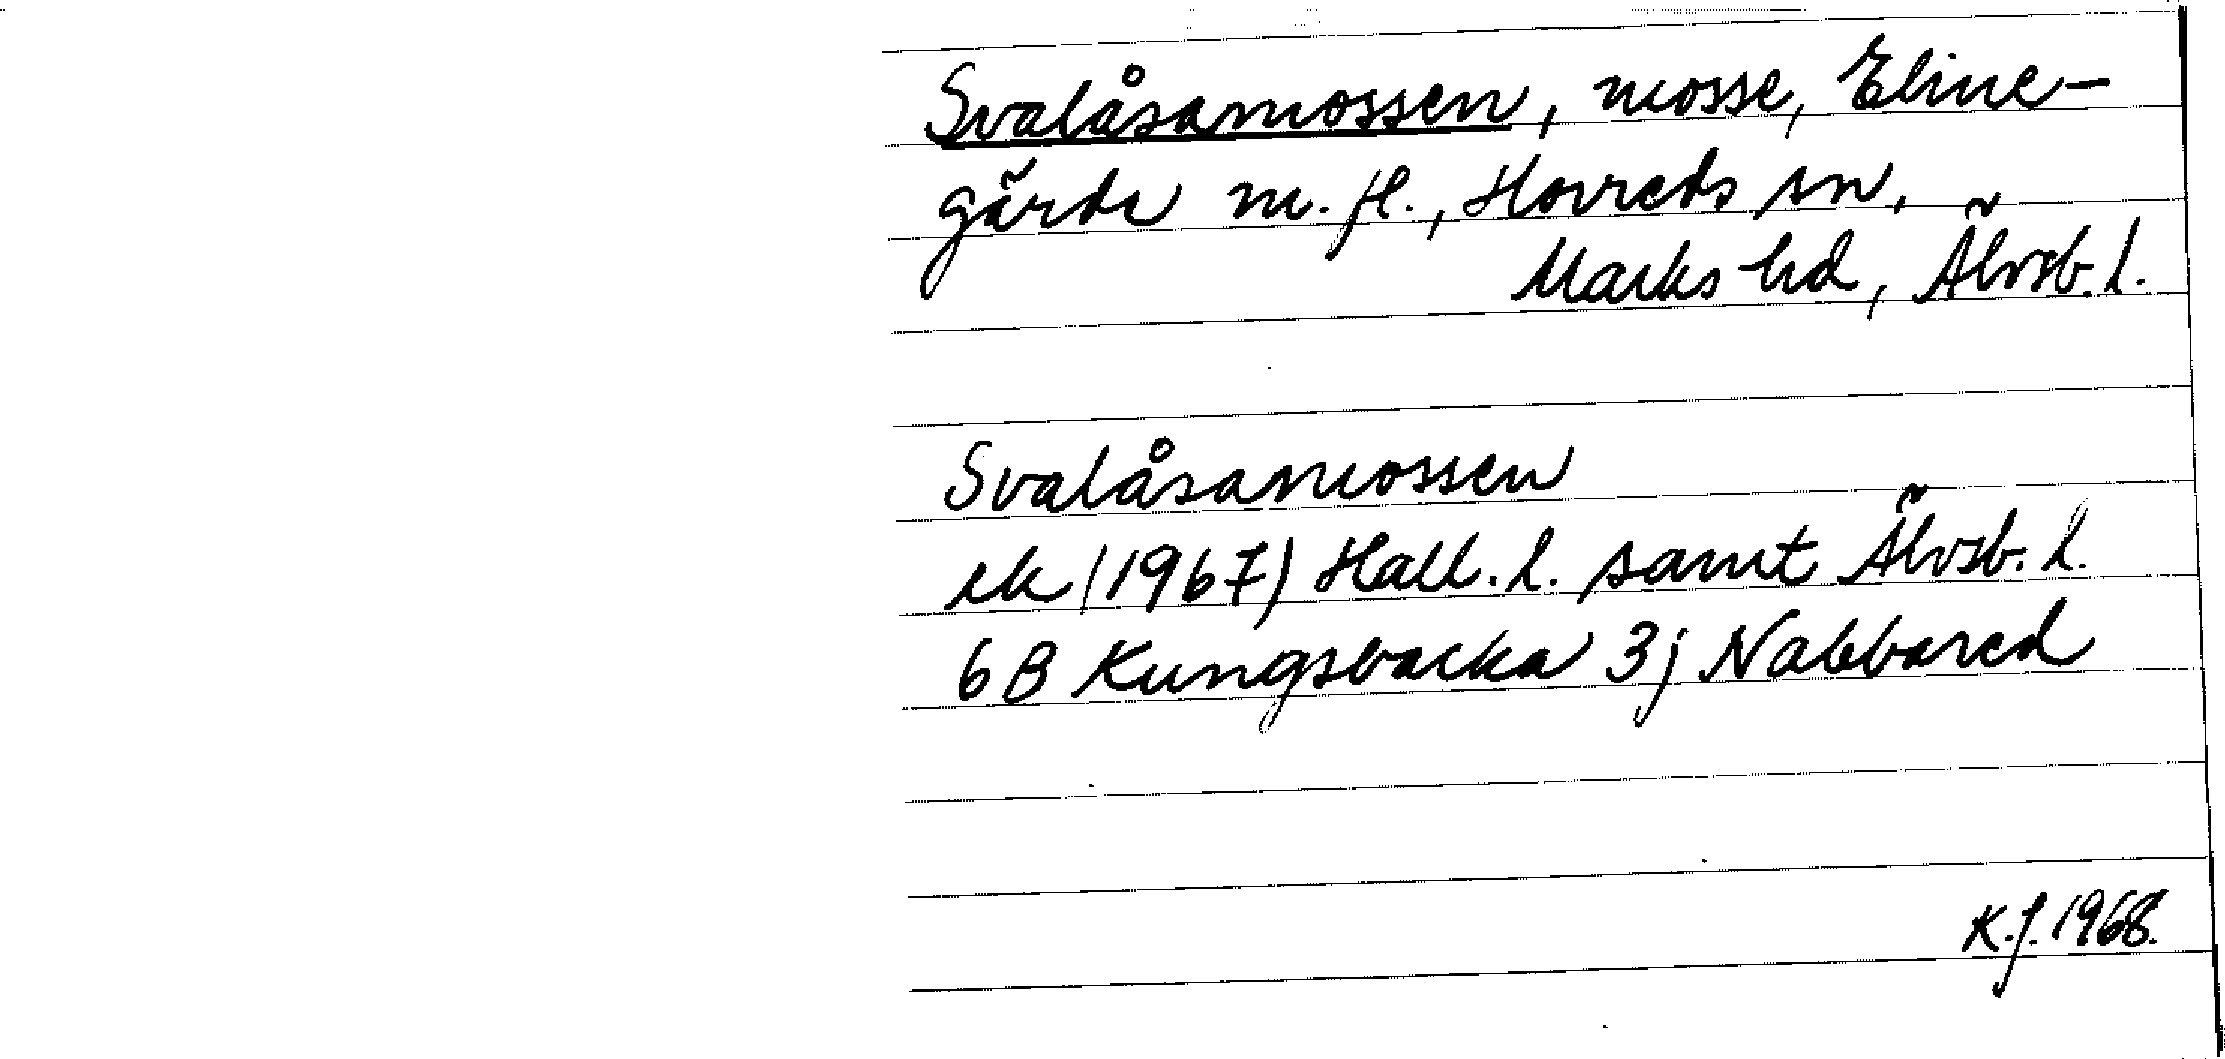 Svalåsamossen, mosse, Eline-
gärde m. fl., Horreds sn,
Marks hd, Älvsb. l.
Svalåsamossen
ek (1967) Hall. l. samt Älvsb. l.
6B Kungsbacka 3j Nabbared
K.J. 1968.